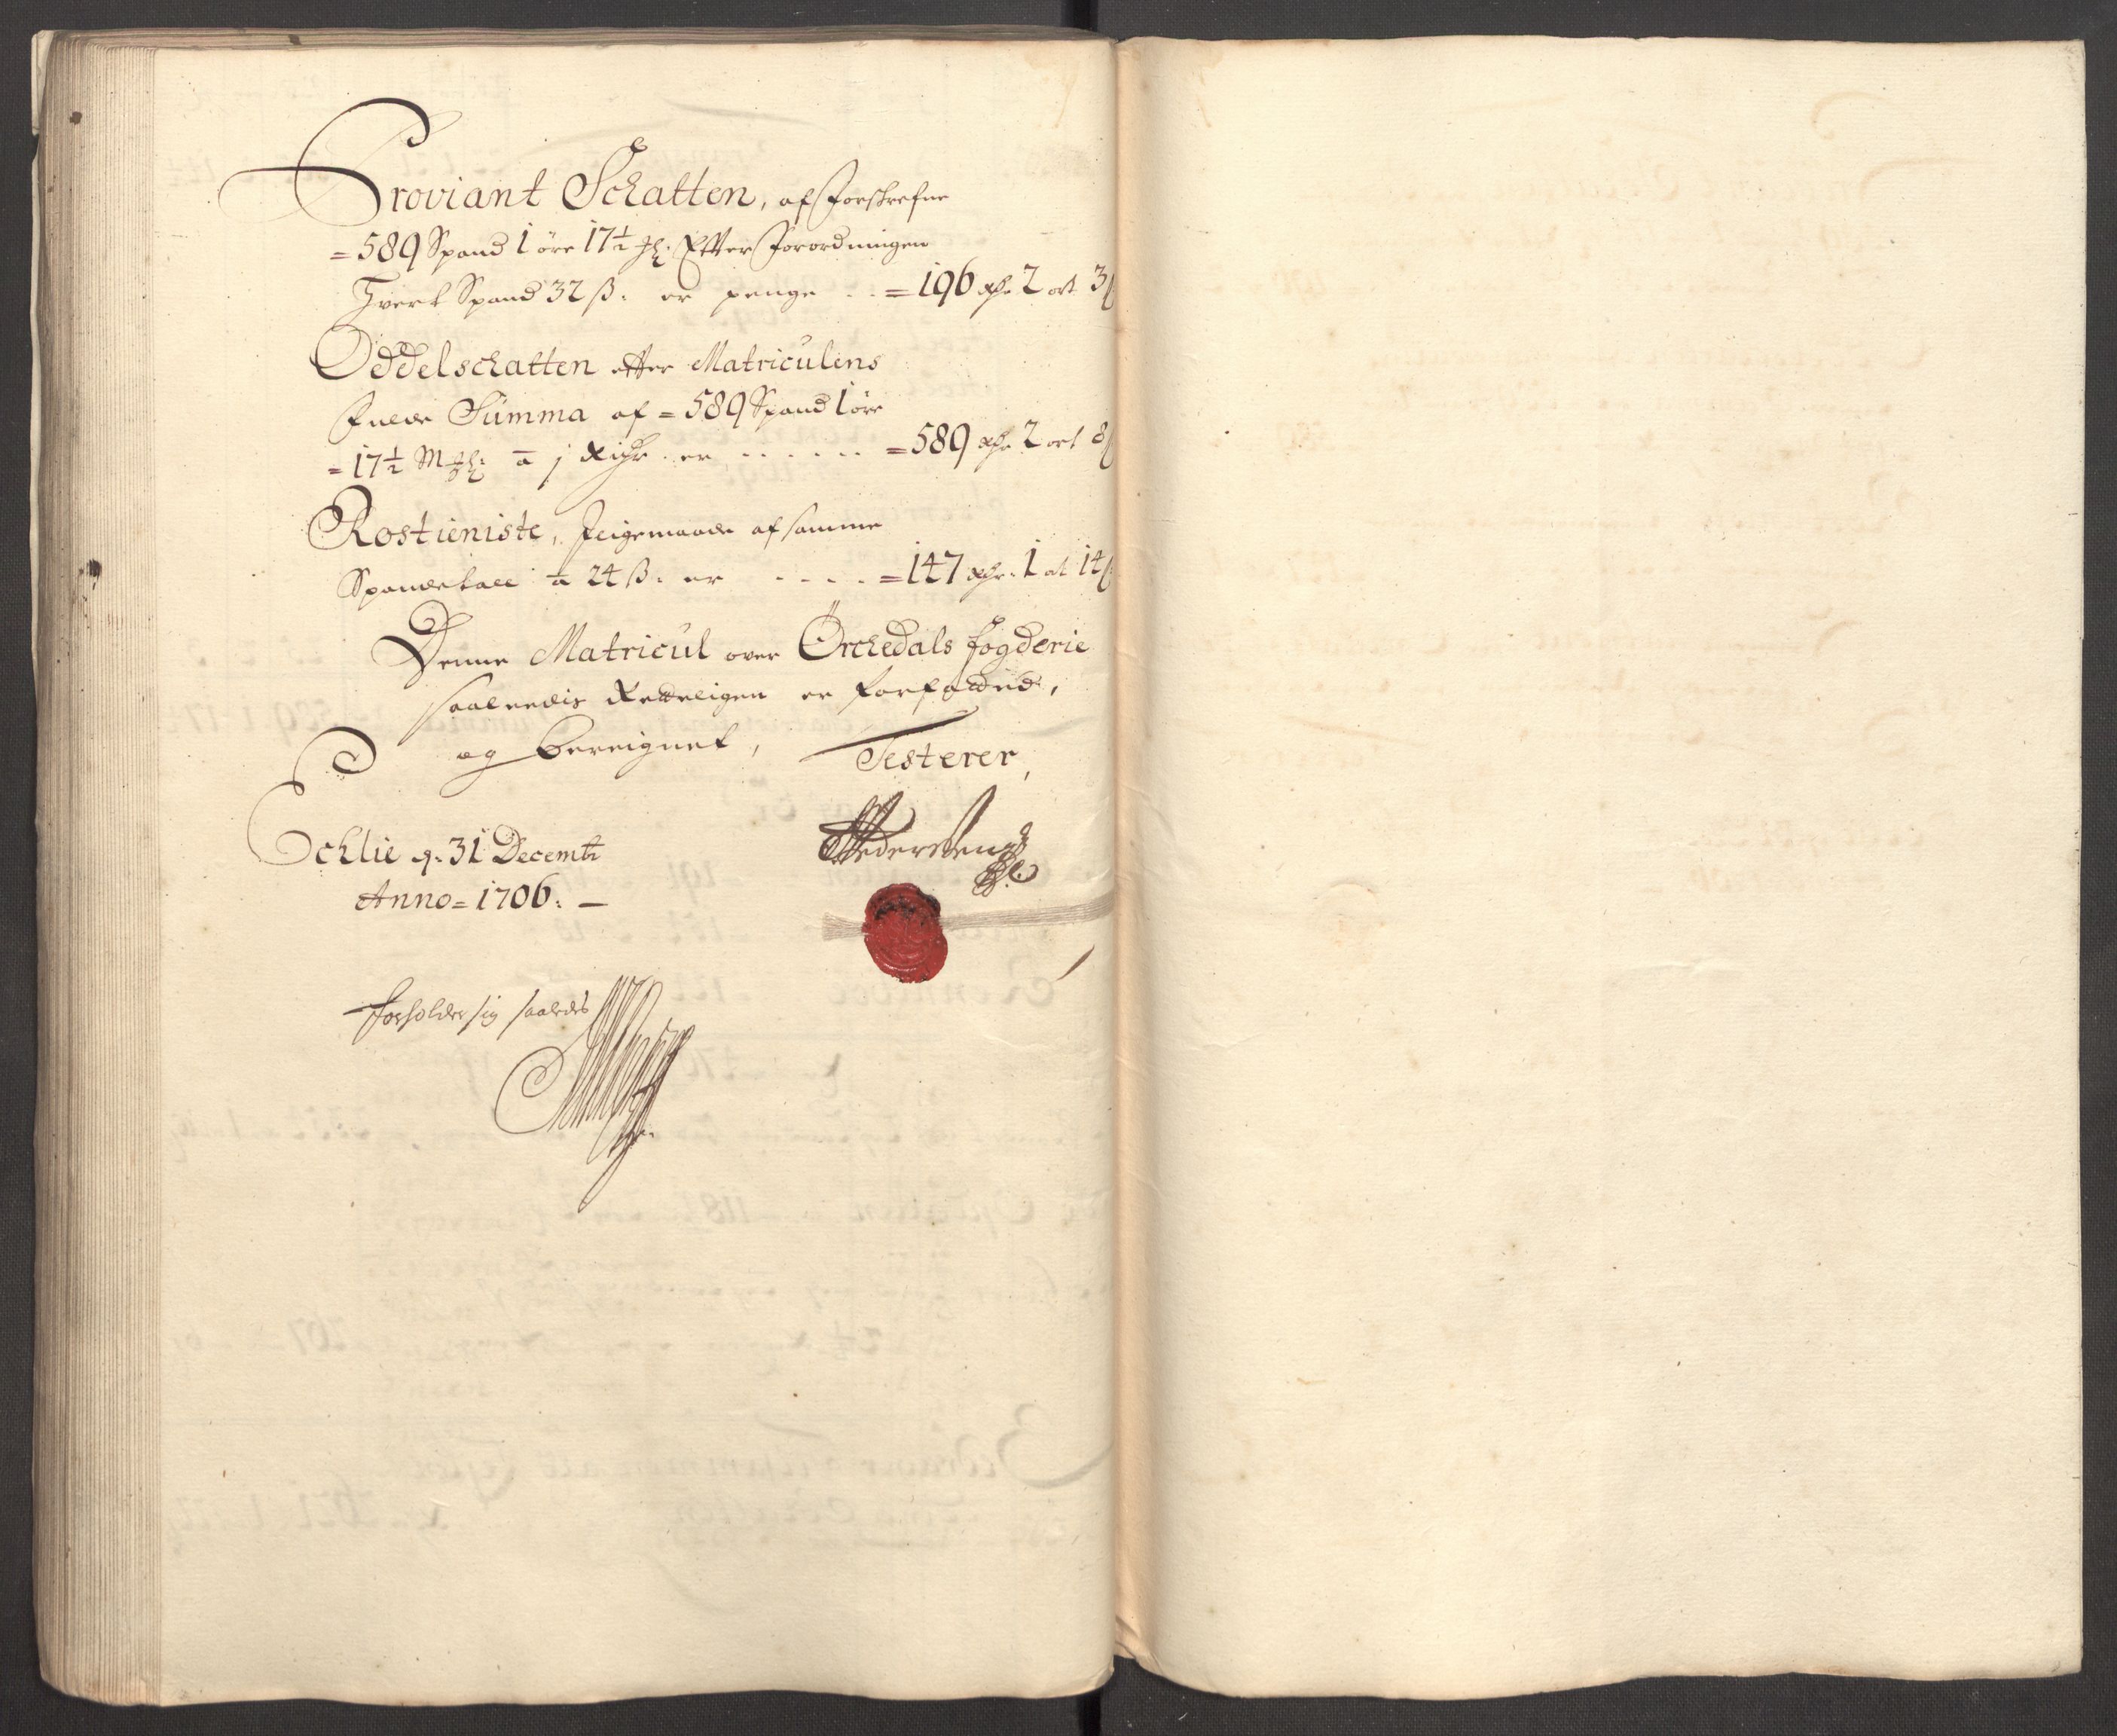 Proviant Schatten, af Forskrefne
= 589 Spand 1 öre 17½ ꝳ: Efter Forordningen
Hvert Spand 32 ß: er penge .. = 196 Rdr 2 ort 3
Oddelschatten efter Matriculens
Fulde Summa af = 589 Spand 1 öre
= 17½ à 1 Rixdr er ...... = 589 Rdr 2 ort 8
Rostieniste, Ligemaade af samme
Spandetall à 24 ß: er .... = 147 Rdr. 1 ort 14
Denne Matricul over Örckedals fogderie
saaledis Retteligen er forfatted,
og bereignet, Testerer,
Echlie d: 31 Decembr
Anno = 1706: —
forholder sig saaledes